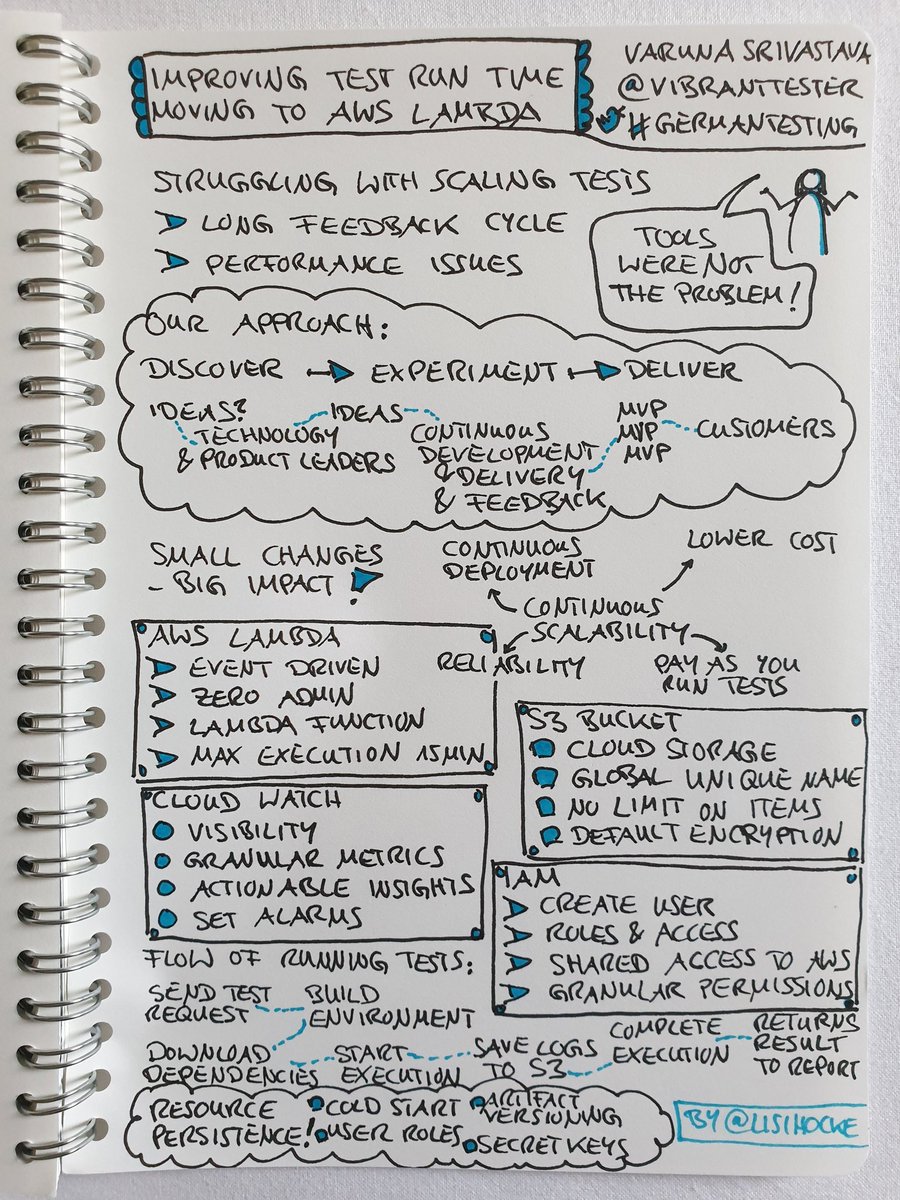 IMPROVING TEST RUN TIME
MOVING TO AWS LAMBDA
VARUNA SRIVASTAVA
@VIBRANTTESTER
#GERMANTESTING
STRUGGLING WITH SCALING TESTS
LONG FEEDBACK CYCLE
PERFORMANCE ISSUES
TOOLS
WERE NOT
THE PROBLEM!
OUR APPROACH:
DISCOVER EXPERIMENT DELIVER
IDEAS?
TECHNOLOGY
& PRODUCT LEADERS
IDEAS
CONTINUOUS
DEVELOPMENT
& DELIVERY
& FEEDBACK
MVP
MVP
MVP
CUSTOMERS
SMALL CHANGES
- BIG IMPACT!
CONTINUOUS
DEPLOYMENT
LOWER COST
CONTINUOUS
SCALABILITY
RELIABILITY
PAY AS YOU
RUN TESTS
AWS LAMBDA
EVENT DRIVEN
ZERO ADMIN
LAMBDA FUNCTION
MAX EXECUTION 15MIN
S3 BUCKET
CLOUD STORAGE
GLOBAL UNIQUE NAME
NO LIMIT ON ITEMS
DEFAULT ENCRYPTION
CLOUD WATCH
VISIBILITY
GRANULAR METRICS
ACTIONABLE INSIGHTS
SET ALARMS
IAM
CREATE USER
ROLES & ACCESS
SHARED ACCESS TO AWS
GRANULAR PERMISSIONS
FLOW OF RUNNING TESTS:
SEND TEST
REQUEST
BUILD
ENVIRONMENT
DOWNLOAD
DEPENDENCIES
START
EXECUTION
SAVE LOGS
TO S3
COMPLETE
EXECUTION
RETURNS
RESULT
TO REPORT
RESOURCE
PERSISTENCE!
COLD START
USER ROLES
ARTIFACT
VERSIONING
SECRET KEYS
BY @LISIHOCKE